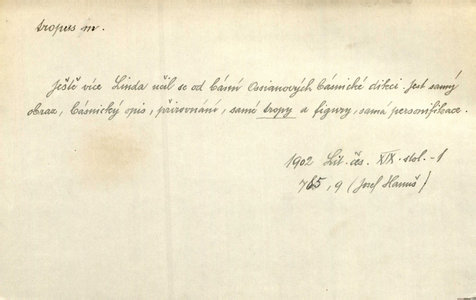 tropus m.
Ještě více Linda učil se od básní Ossianových básnické dikci. Jest samý
obraz, básnický opis, přirovnání, samé tropy a figury, samá personifikace.
1902 Lit. čes. XIX. stol. -1
765, 9 (Josef Hanuš)